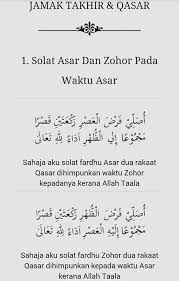 JAMAK TAKHIR & QASAR
1. Solat Asar Dan Zohor Pada
Waktu Asar
أُصَلِّيْ فَرْضَ الْعَصْرِ رَكْعَتَيْنِ قَصْرًا
مَجْمُوْعًا إِلَى الظُّهْرِ اَدَاءً لِلّٰهِ تَعَالَى
Sahaja aku solat fardhu Asar dua rakaat
Qasar dihimpunkan waktu Zohor
kepadanya kerana Allah Taala
أُصَلِّيْ فَرْضَ الظُّهْرِ رَكْعَتَيْنِ قَصْرًا
مَجْمُوْعًا إِلَيْهِ الْعَصْرُ اَدَاءً لِلّٰهِ تَعَالَى
Sahaja aku solat fardhu Zohor dua rakaat
Qasar dihimpunkan kepada waktu Asar
kerana Allah Taala